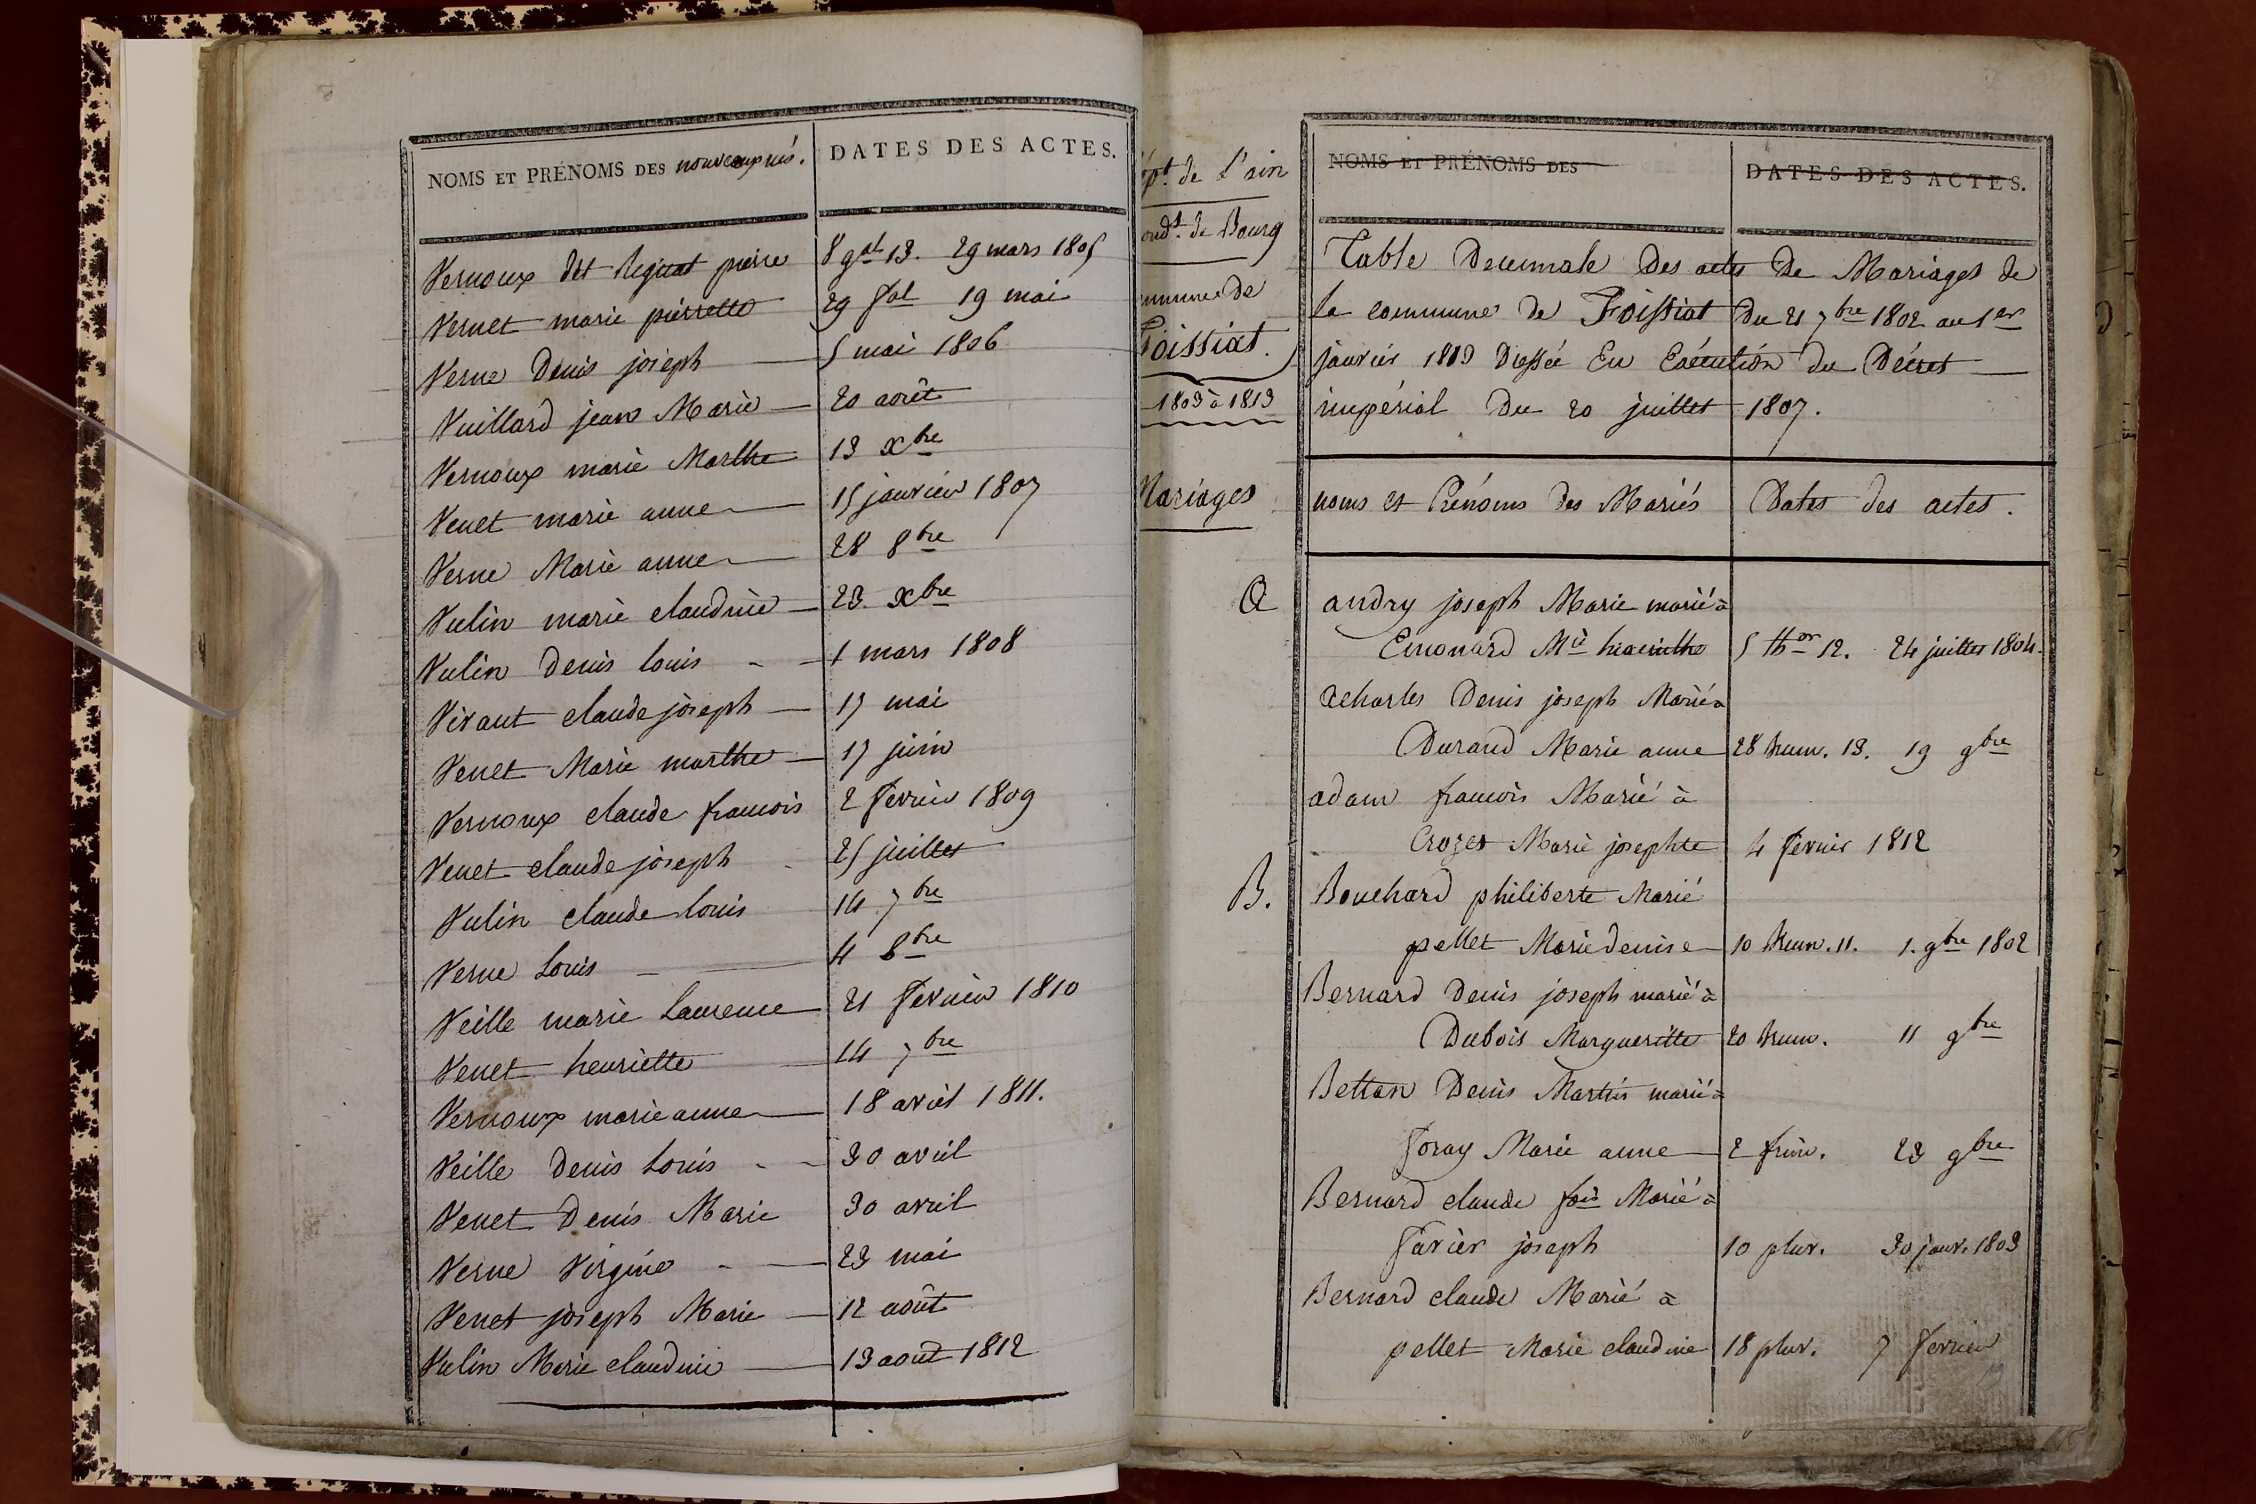 NOMS ET PRÉNOMS DES nouveaux nés. DATES DES ACTES.
Vernoux dit Reguat pierre 8 gal 13. 29 mars 1805
Vernet marie pierrette 29 fal 19 mai
Verne Denis joseph 5 mai 1806
Vuillard jean Marie 20 août
Vernoux marie Marthe 13 xbre
Venet marie anne 15 janvier 1807
Verne Marie anne 28 8bre
Vulin marie claudine 23 xbre
Vulin Denis louis 1 mars 1808
Virant claude joseph 17 mai
Venet Marie marthe 17 juin
Vernoux claude francois 2 fevrier 1809
Venet claude joseph 25 juillet
Vulin claude louis 14 7bre
Verne Louis 4 8bre
Veille marie Laurence 21 fevrier 1810
Venet henriette 14 7bre
Vernoux marie anne 18 avril 1811.
Veille Denis Louis 30 avril
Venet Denis Marie 30 avril
Verne Virginie 23 mai
Venet joseph Marie 12 août
Vulin Marie claudine 13 août 1812
pt de L'ain
ondt de Bourg
mmune de
Foissiat.
1803 à 1813
Mariages
NOMS ET PRÉNOMS DES DATES DES ACTES.
Table Decennale Des actes De Mariages de
la commune de Foissiat Du 21 7bre 1802 au 1er
janvier 1813 Dressée En Exécution du Décret
impérial Du 20 juillet 1807.
noms et Prénoms des Mariés Dates des actes.
a andry joseph Marie marié à
Emonard Mie hiacinthe 5 thor 12. 24 juillet 1804.
acharles Denis joseph Marié à
Durand Marie anne 28 brum. 13. 19 9bre
adam francois Marié à
Crozet Marie josephte 4 fevrier 1812
B. Bouchard philiberte Marié
pellet Marie denise 10 brum. 11. 1. 9bre 1802
Bernard Denis joseph marié à
Dubois Margueritte 20 brum. 11 9bre
Bettan Denis Martin marié à
foray Marie anne 2 frim. 23 9bre
Bernard claude fois Marié à
favier joseph 10 pluv. 30 janv. 1803
Bernard claude Marié à
pellet Marie claudine 18 pluv. 7 fevrier